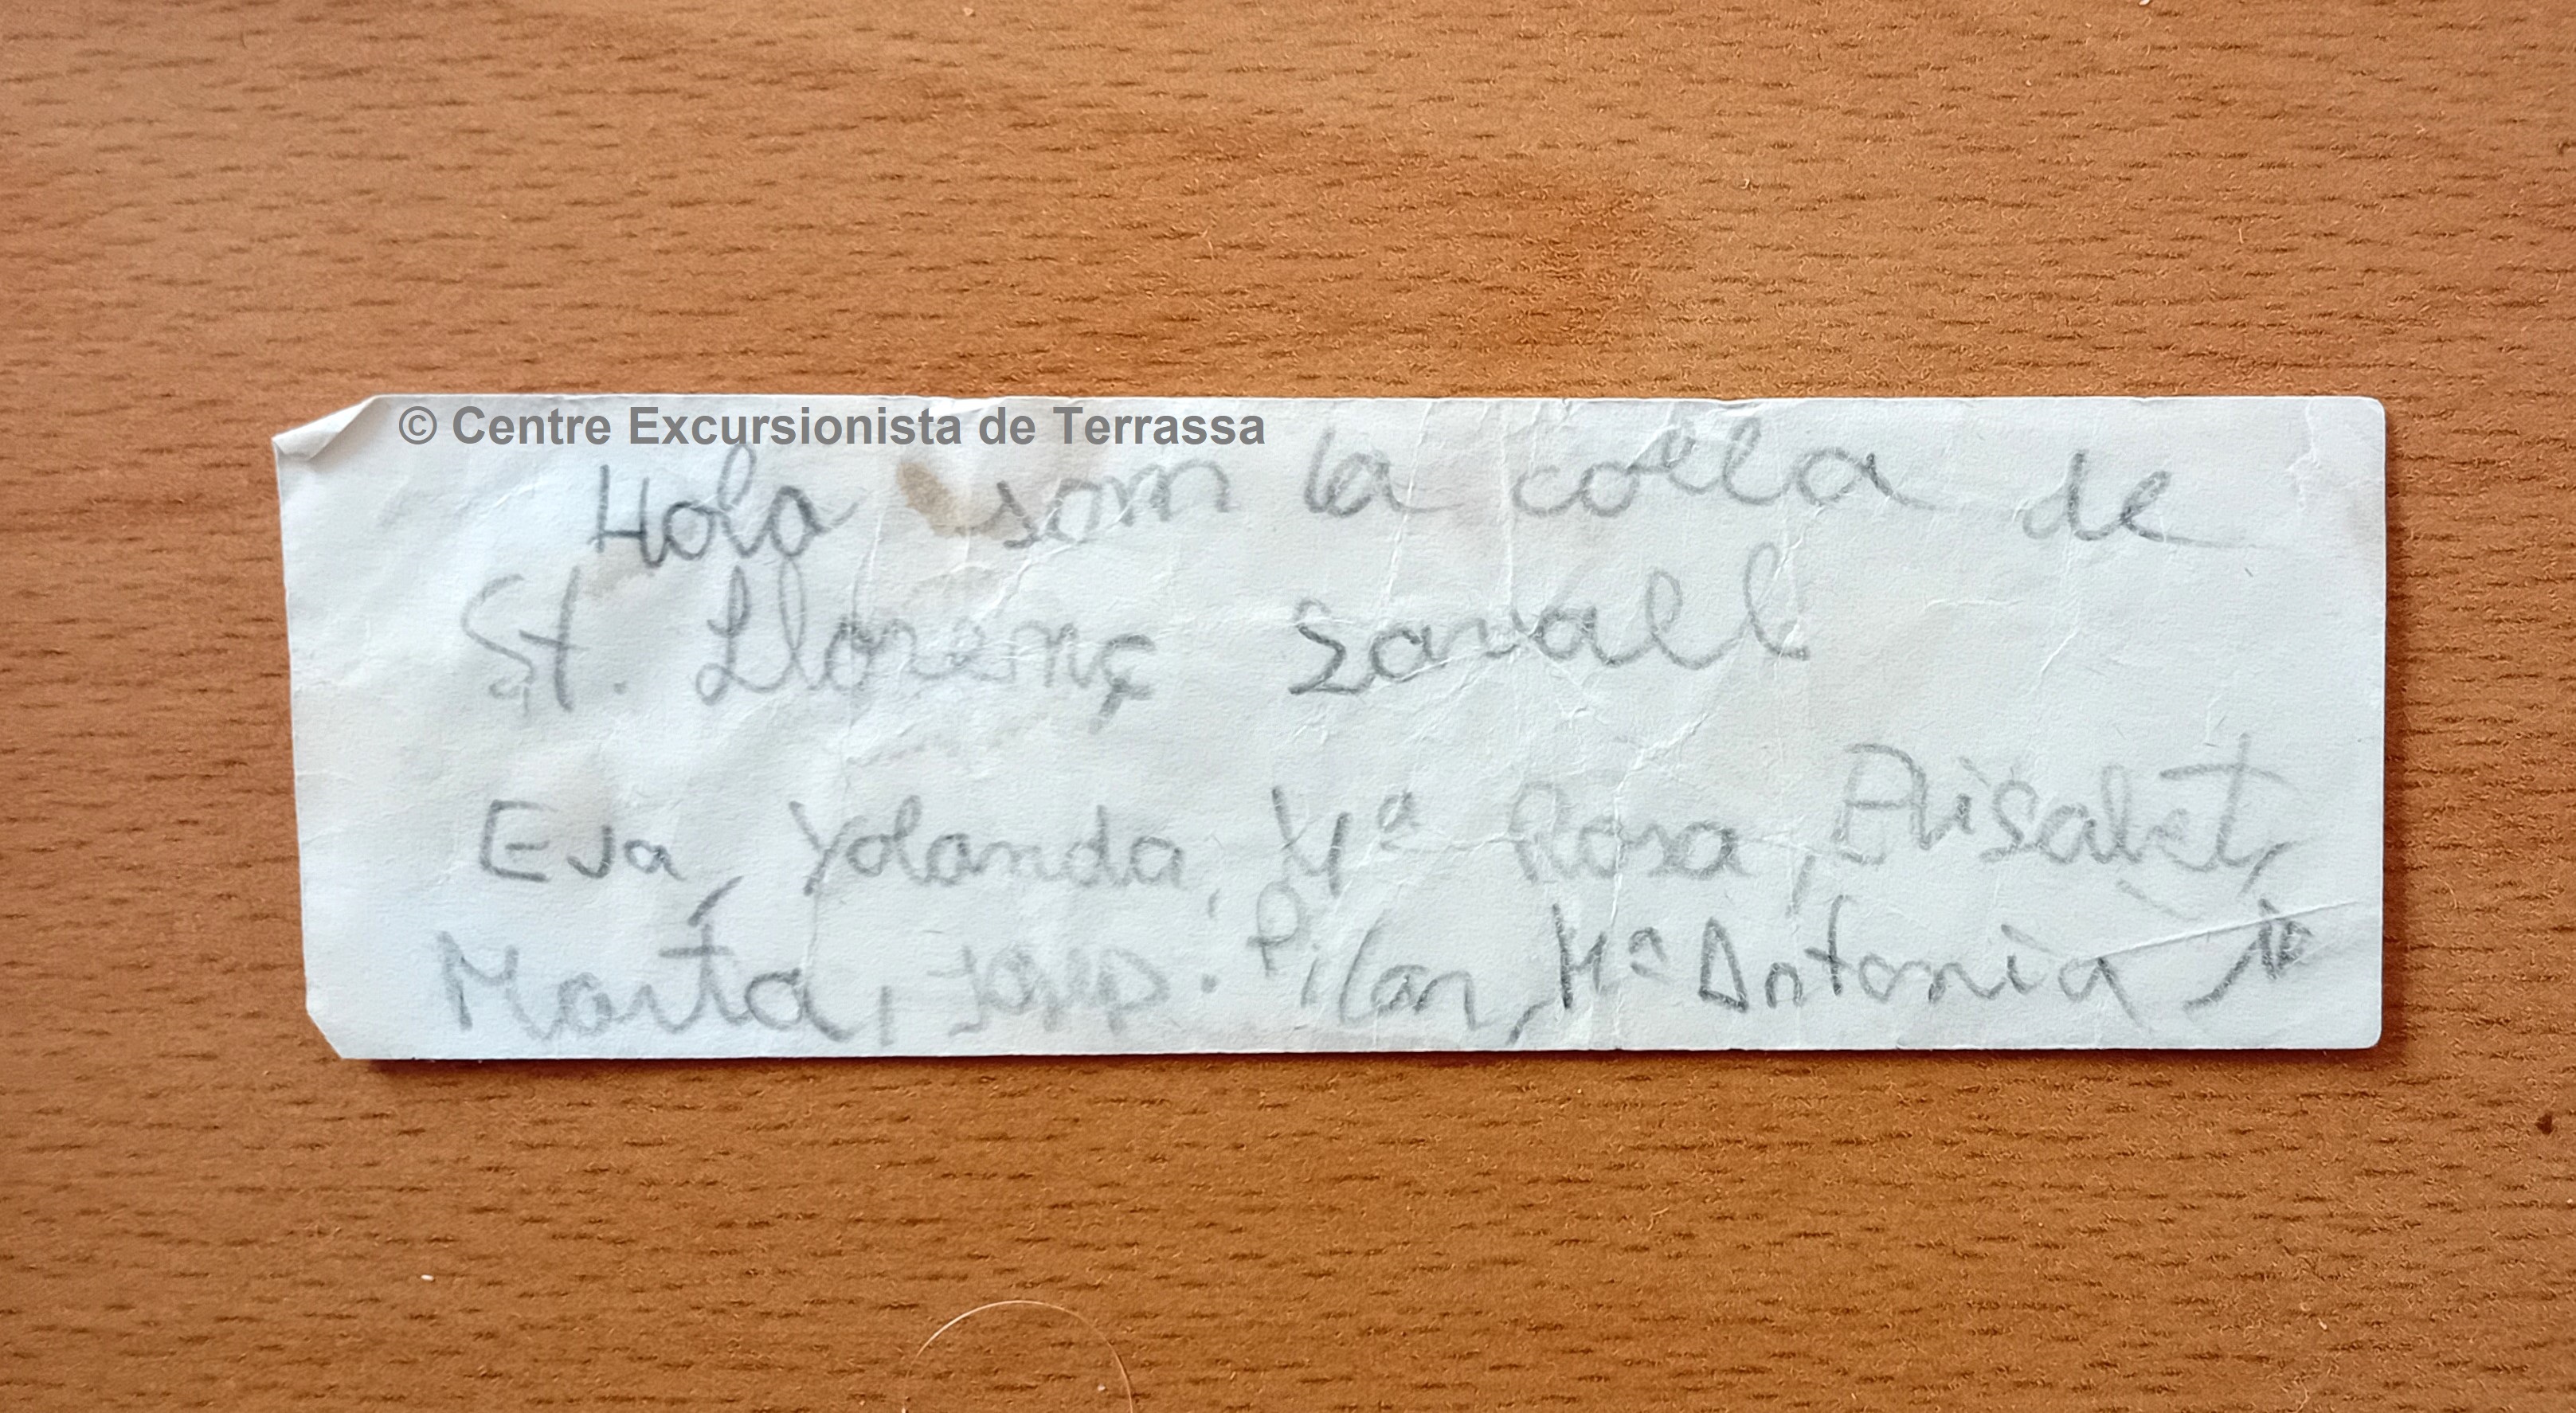 © Centre Excursionista de Terrassa
Hola som la colla de
St. Llorenç Savall
Eva, Yolanda, Mª Rosa, Elisabet,
Marta, Josep. Pilar, Mª Antonia